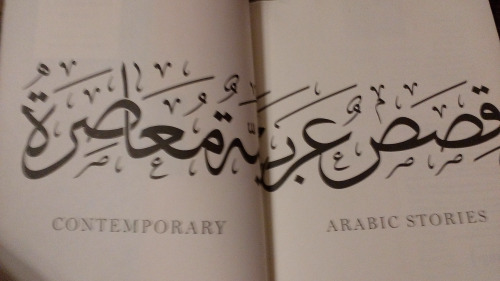 قصصٌ عربيّةٌ مُعاصِرةٌ
CONTEMPORARY ARABIC STORIES